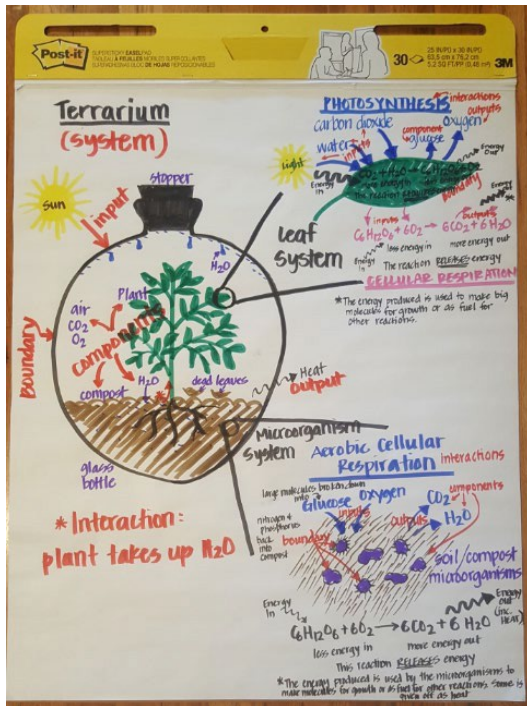 Post-it
SUPER STICKY EASEL PAD
30
25 IN/PO x 30 IN/PO
63,5 cm x 76,2 cm
3M
Terrarium
(system)
sun
input
stopper
H2O
boundary
air
CO2
O2
Plant
components
compost
H2O
dead leaves
Heat
output
glass
bottle
*Interaction:
plant takes up H2O
PHOTOSYNTHESIS
interactions
outputs
carbon dioxide
component
glucose
oxygen
water
inputs
light
Energy
In
Energy
Out
boundary
Leaf
System
inputs
outputs
C6H12O6 + 6O2 → 6CO2 + 6H2O
Energy
In
less energy in
more energy out
The reaction RELEASES energy
CELLULAR RESPIRATION
*The energy produced is used to make big
molecules for growth or as fuel for
other reactions.
Microorganism
System
Aerobic Cellular
Respiration
interactions
large molecules broken down
into
Glucose
Oxygen
inputs
outputs
CO2
H2O
components
nitrogen &
phosphorus
back
into
compost
boundary
soil/compost
microorganisms
Energy
In
Energy
out
(inc.
HEAT)
C6H12O6 + 6O2 → 6CO2 + 6H2O
less energy in
more energy out
This reaction RELEASES energy
*The energy produced is used by the microorganisms to
make molecules for growth or as fuel for other reactions. Some is
given off as heat